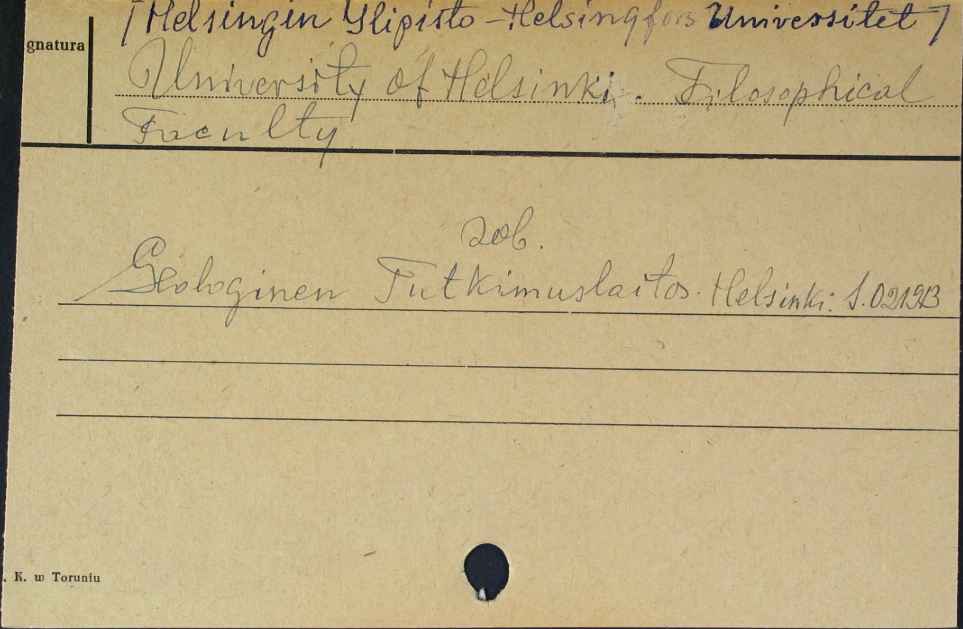 [Helsingin Ylipisto - Helsingfors Universitet]
gnatura
University of Helsinki. Filosophical
Faculty
zob.
Geologinen Tutkimuslaitos. Helsinki. S.0219B
. K. w Toruniu